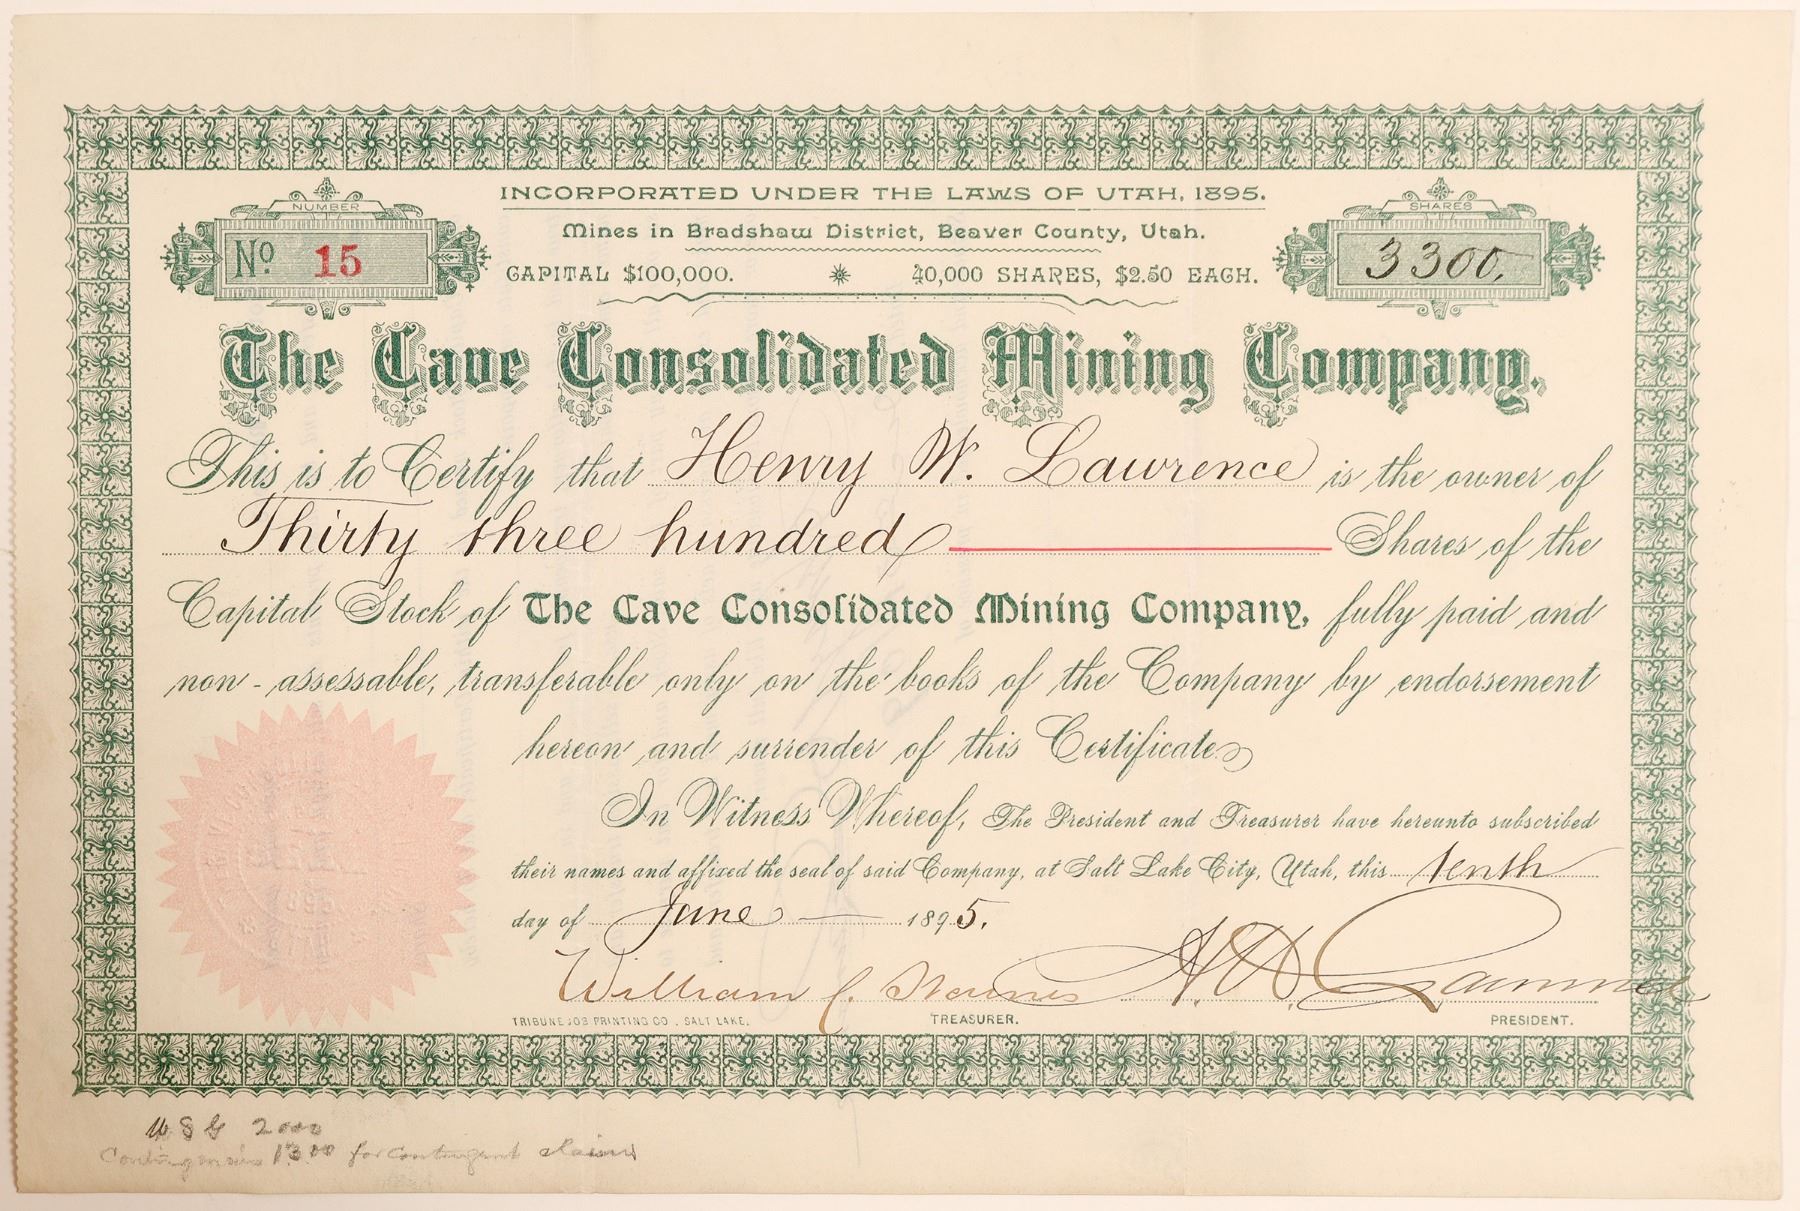 INCORPORATED UNDER THE LAWS OF UTAH, 1895.
Mines in Bradshaw District, Beaver County, Utah.
NUMBER
No. 15
CAPITAL $100,000. 40,000 SHARES, $2.50 EACH.
SHARES
3300.
The Cave Consolidated Mining Company.
This is to Certify that Henry W. Lawrence is the owner of
Thirty three hundred Shares of the
Capital Stock of The Cave Consolidated Mining Company, fully paid and
non-assessable, transferable only on the books of the Company by endorsement
hereon and surrender of this Certificate
In Witness Whereof, The President and Treasurer have hereunto subscribed
their names and affixed the seal of said Company, at Salt Lake City, Utah, this tenth
day of June 1895.
William C.
TRIBUNE JOB PRINTING CO., SALT LAKE.
TREASURER.
PRESIDENT.
2000
1300 for contingent claims